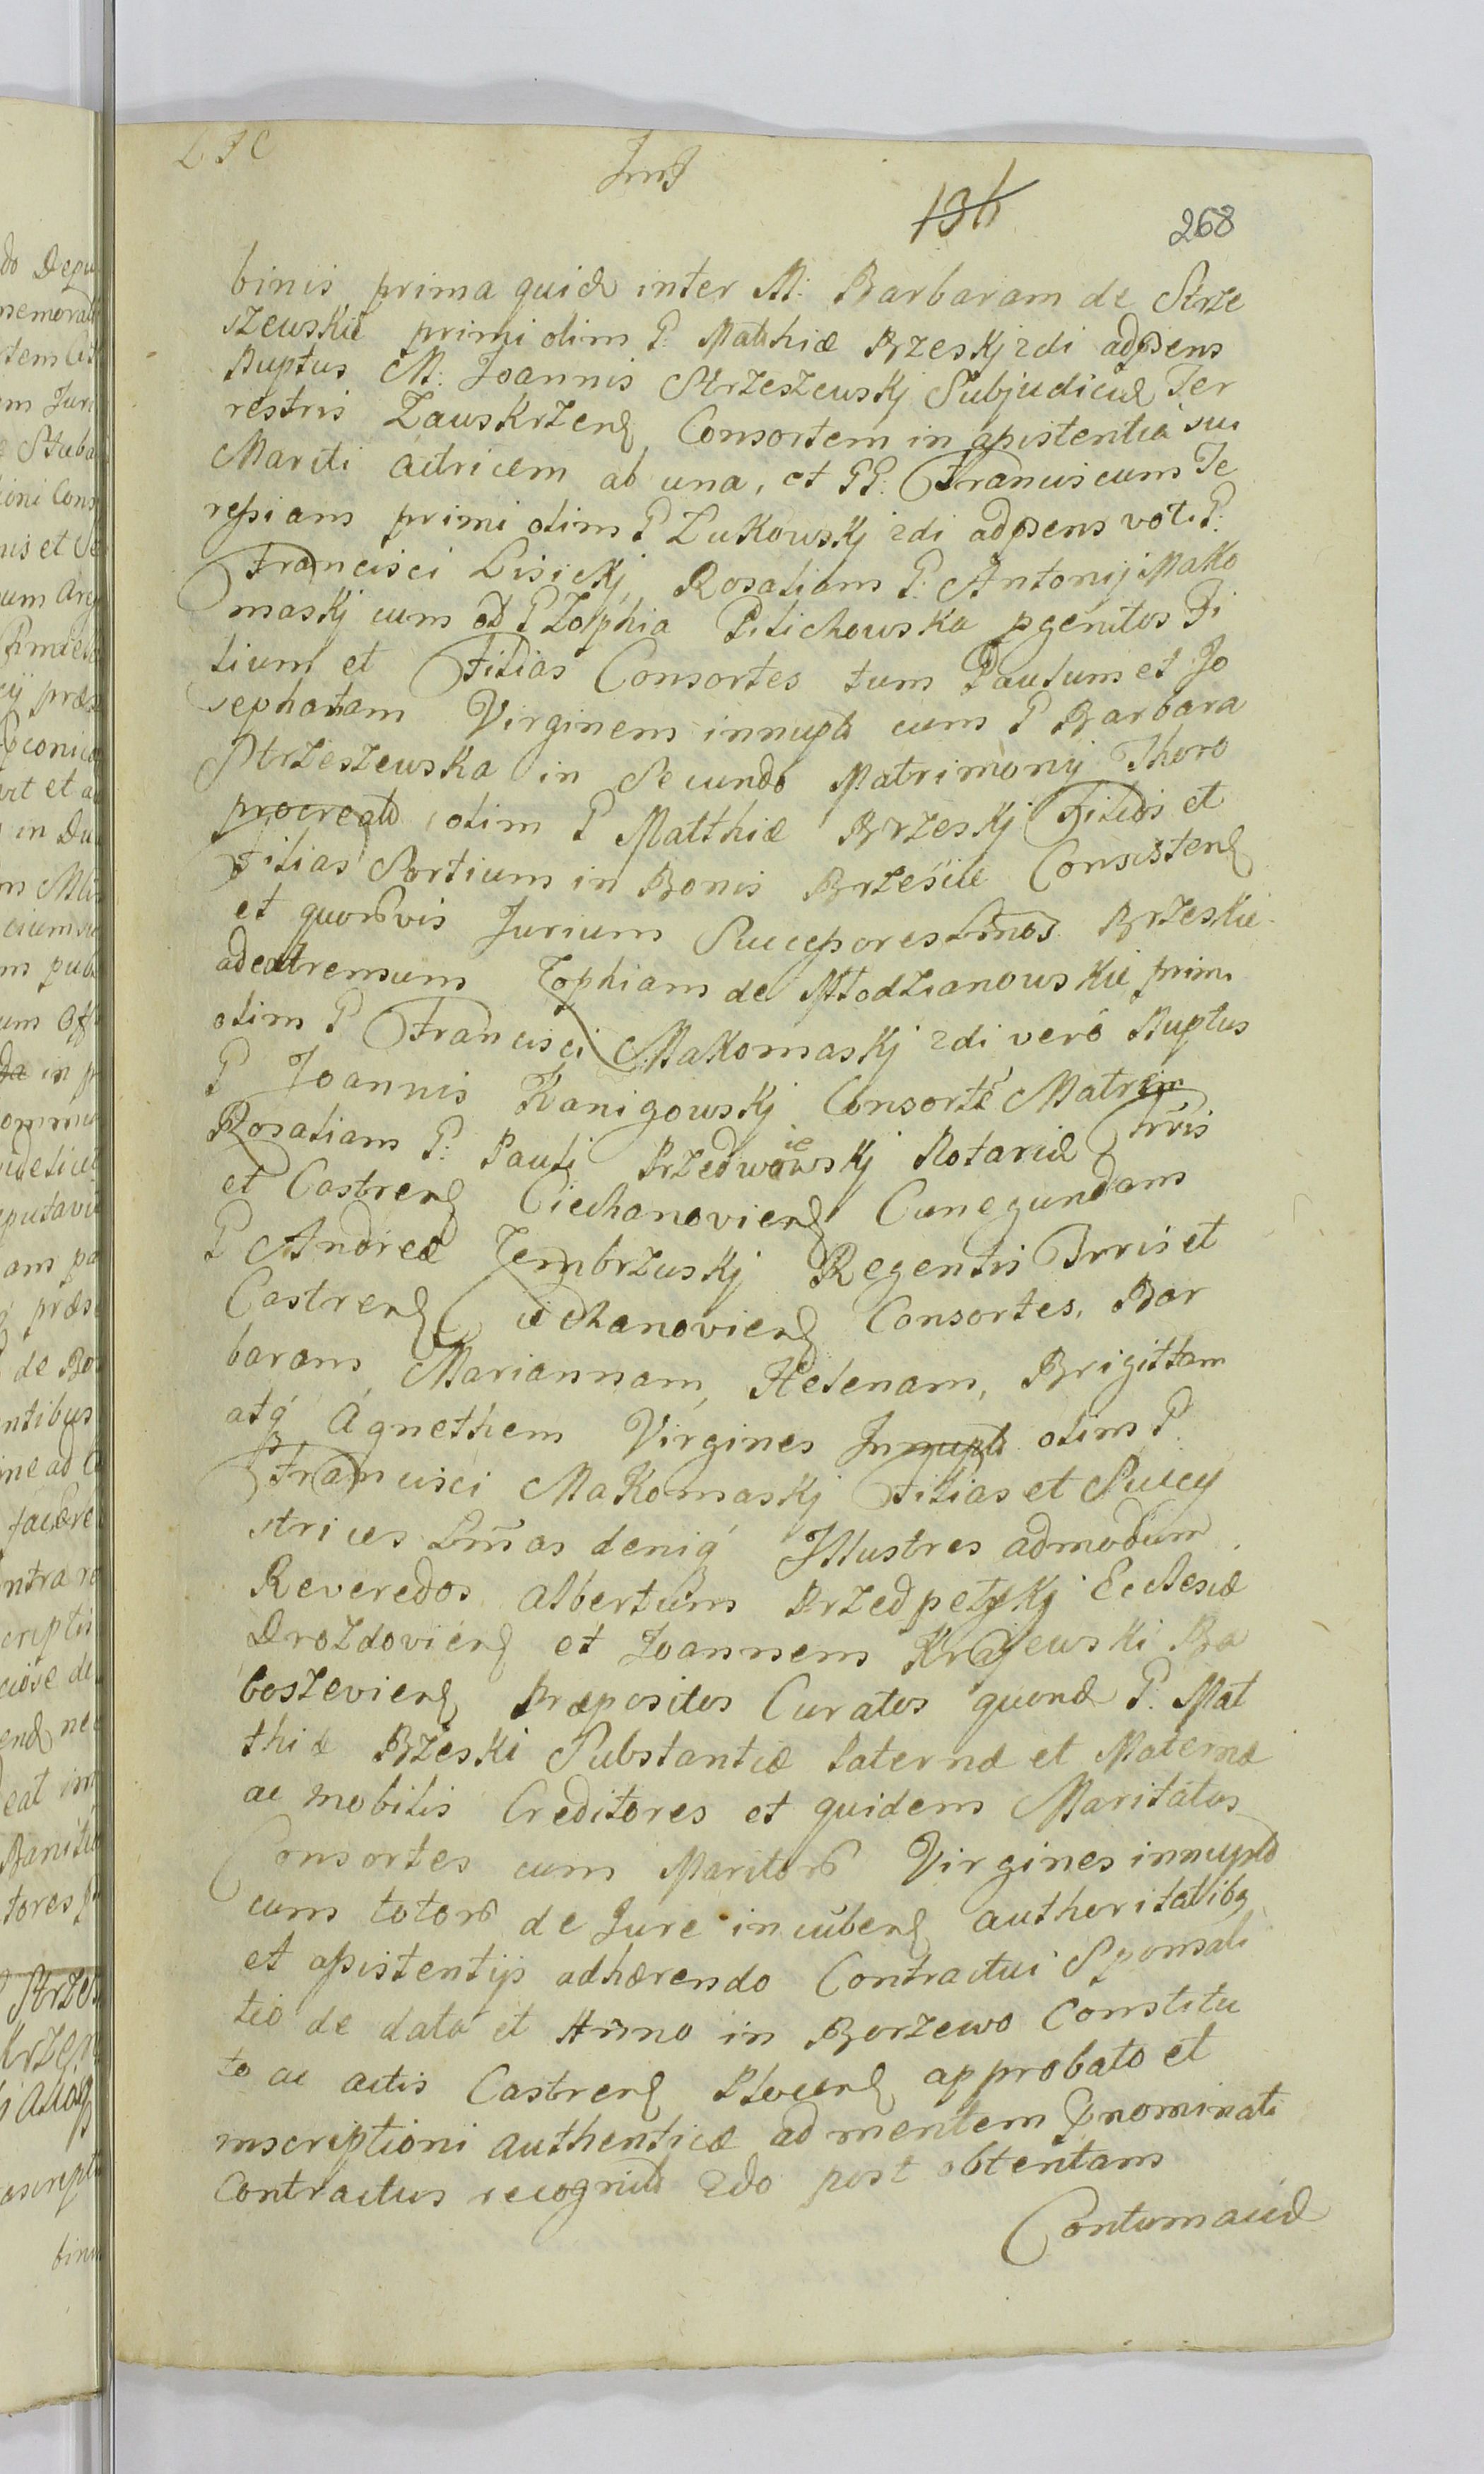 L I C
134 268
binis prima quid inter M: Barbaram de Strze
szewskie primi olim P. Matthiæ Brzeskj 2di adpsens
Nuptus M: Joannis Strzeszewskj Subjudicis Ter
restris Zawskrzen Consortem in assistentia sui
Mariti actricem ab una, et PP: Franciscum Te
ressiam primi olim P Zukowskj 2di adpsens voti P:
Francisci Lisickj, Rosaliam P: Antonij Mako
maskj cum od P Zophia Pilichowska pgenitos Fi
lium et Filias Consortes tum Paulum et Jo
sephatam Virginem innupt cum P Barbara
Strzeszewska in Secundo Matrimonij Thoro
procreat olim P Matthiæ Brzeskj Filios et
Filias Sortium in Bonis Brzescie Consisten
et quorvis Jurium Successores Brzeskie
adextremum Zophiam de Młodzianowskie primi
olim P Francisci Makomaskj 2di vero Nuptus
P Joannis Kanigowskj Consorte Matrem
Rosaliam P: Pauli Przedwoiewskj Notarii Trris
et Castren Ciechanovien Cunegundam
P Andreæ Zembrzuskj Regentis Trris et
Castren Ciechanovien Consortes, Bar
baram Mariannam, Helenam, Brigittam
atq Agnethem Virgines Innupt olim P.
Francisci Makomaskj Filias et Succes
strices Lmas deniq Illustres admodum
Reveredos Albertum Przedpelskj Ecclesiæ
Drozdovien et Joannem Krajewski Ba
boszevien Præpositos Curatos quond P. Mat
thiæ Brzeski Substantiæ Paternæ et Maternæ
ac mobilis Creditores et quidem Maritatas
Consortes cum Maritor Virgines innupt
cum totor de Jure incuben authoritatibq
et assistentijs adhærendo Contractui Sponsali
tio de data et Anno in Borzewo Constitu
to ac actis Castren Plocen approbato et
inscriptioni authenticæ ad mentem pnominati
Contractus recognit 2do post obtentam
Contumacia